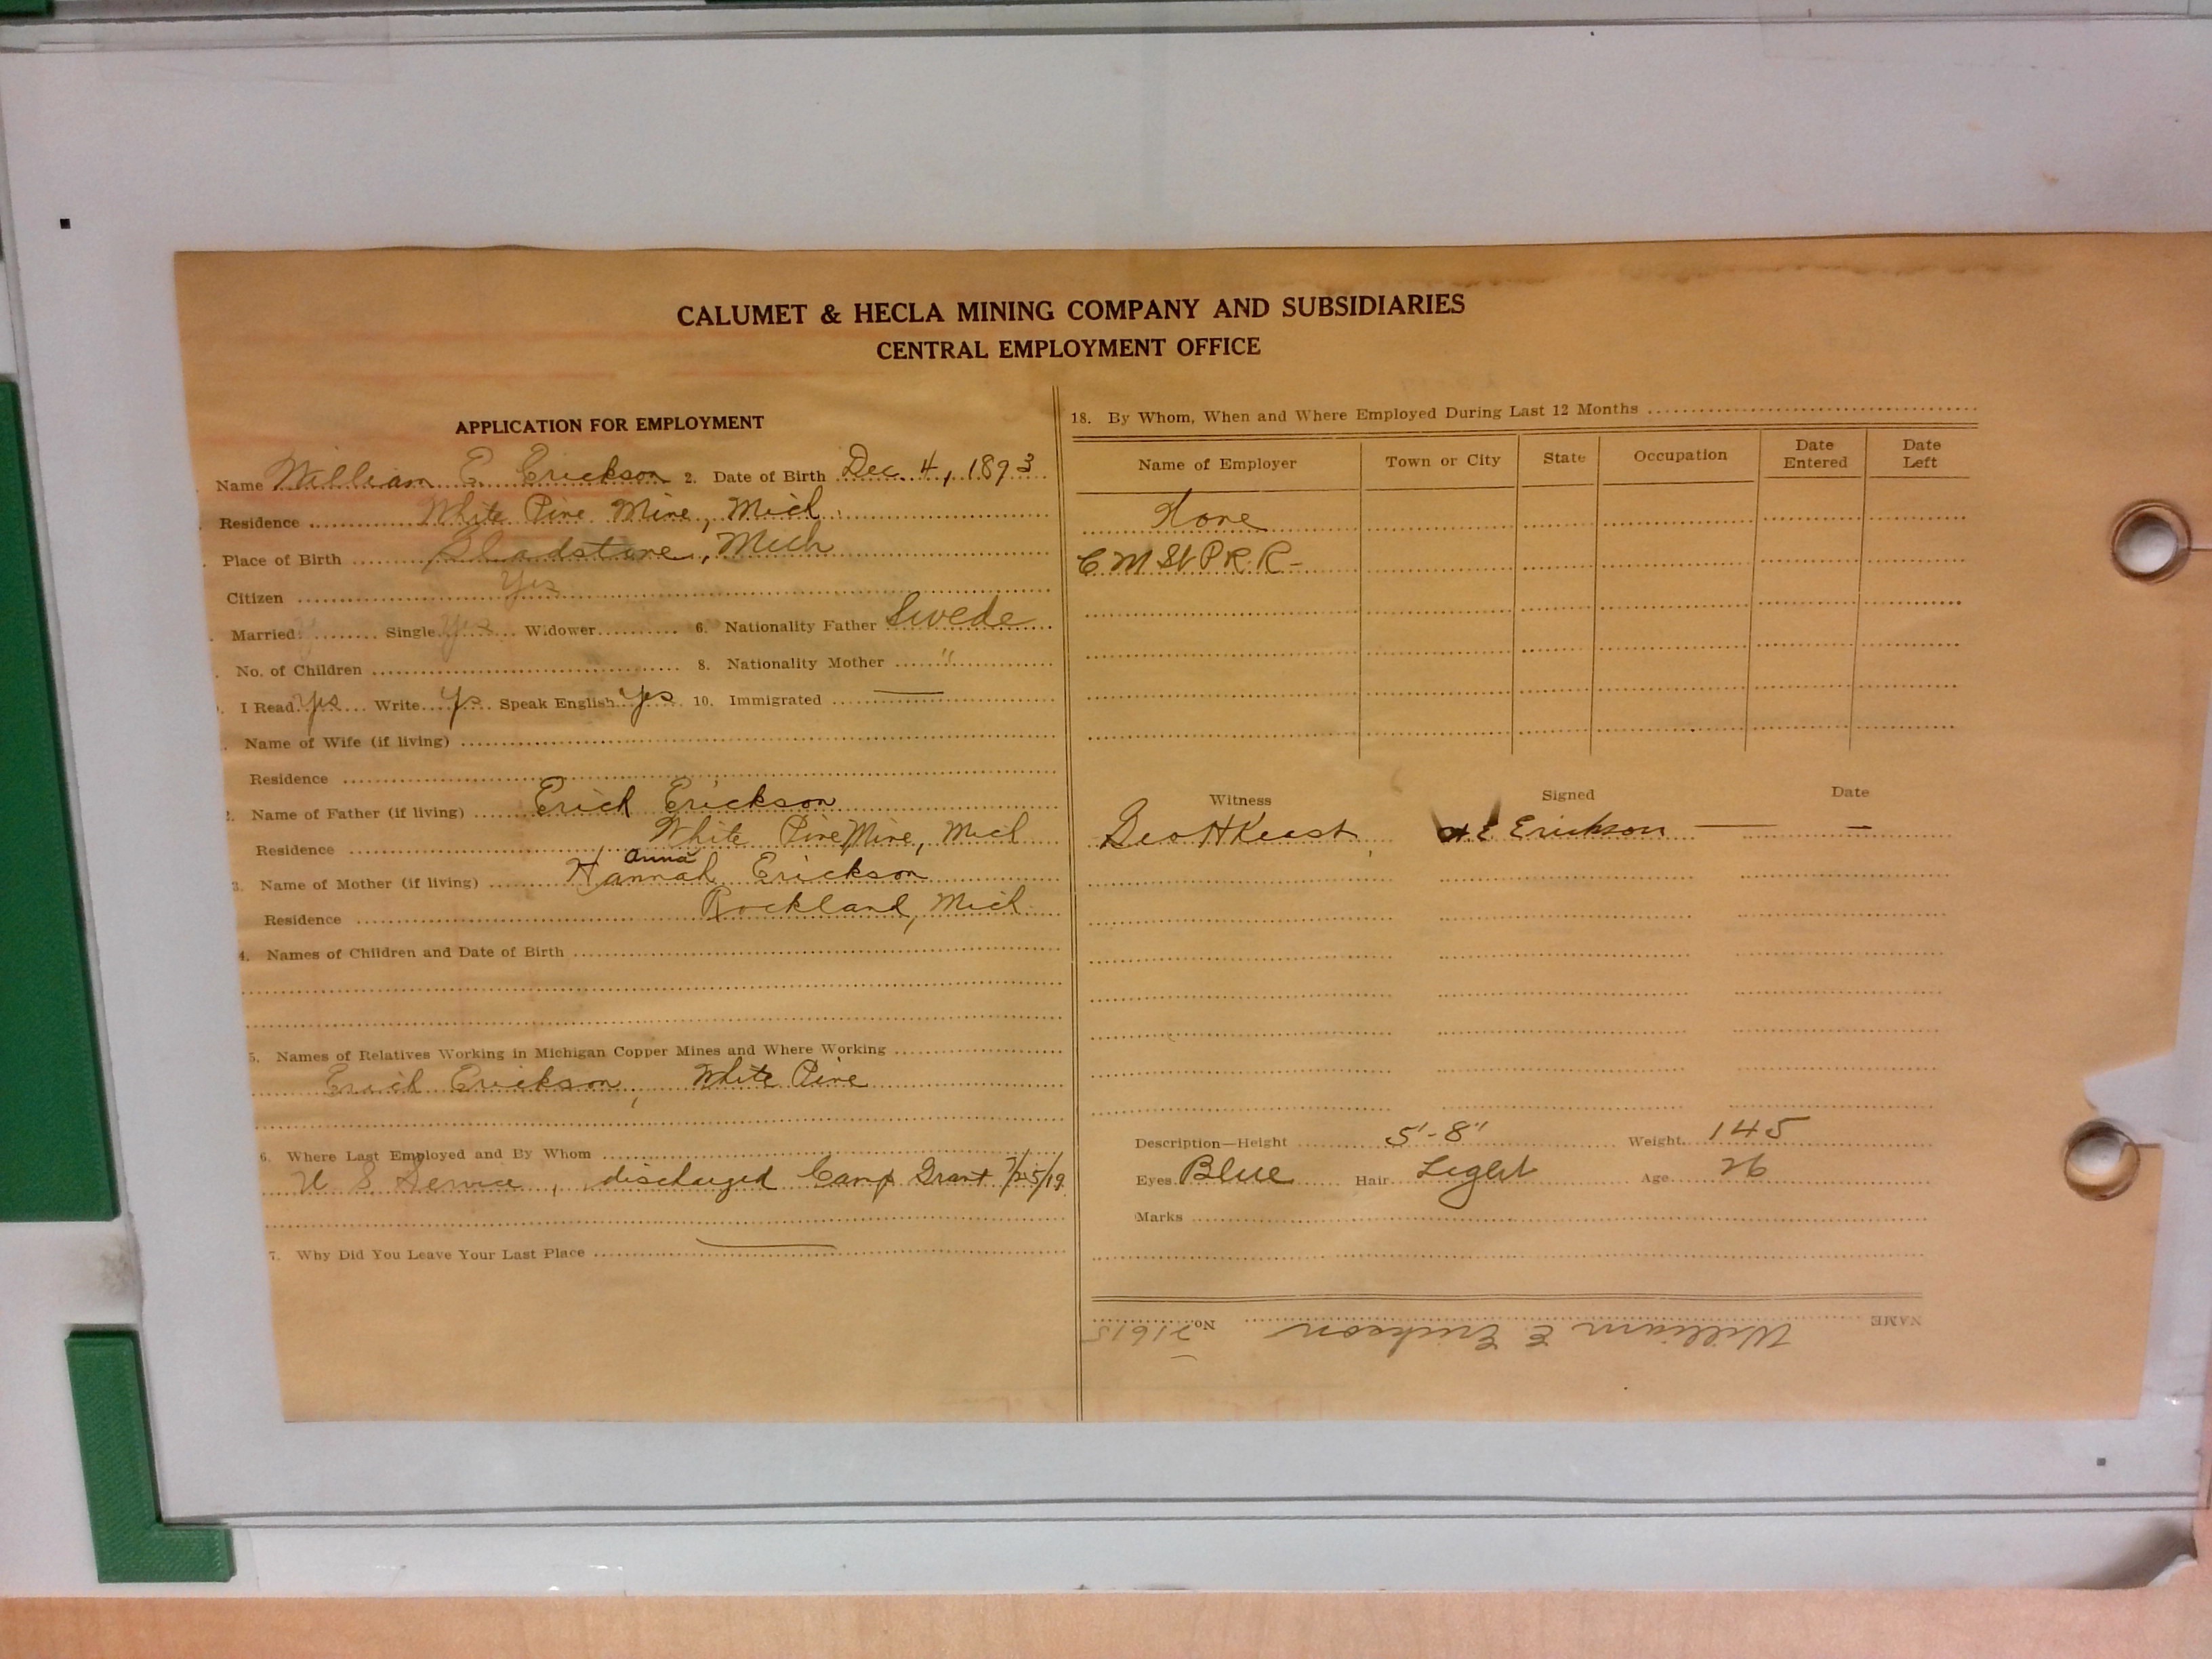 CALUMET & HECLA MINING COMPANY AND SUBSIDIARIES
CENTRAL EMPLOYMENT OFFICE
APPLICATION FOR EMPLOYMENT
Name William E. Erickson 2. Date of Birth Dec. 4, 1893
Residence White Pine Mine, Mich
Place of Birth Gladstone, Mich
Citizen Yes
Married Single Yes Widower 6. Nationality Father Swede
No. of Children 8. Nationality Mother "
I Read Yes Write Ys Speak English Yes 10. Immigrated —
Name of Wife (if living)
Residence
2. Name of Father (if living) Erick Erickson
Residence White Pine Mine, Mich
Anna
3. Name of Mother (if living) Hannah Erickson
Residence Rockland, Mich
4. Names of Children and Date of Birth
5. Names of Relatives Working in Michigan Copper Mines and Where Working
Erick Erickson, White Pine
6. Where Last Employed and By Whom
U S Service, discharged Camp Grant 7/25/19
7. Why Did You Leave Your Last Place —
18. By Whom, When and Where Employed During Last 12 Months
Name of Employer Town or City State Occupation Date Entered Date Left
None
C M St P R R -
Witness Signed Date
Geo H Keast W E Erickson — —
Description—Height 5'-8" Weight 145
Eyes Blue Hair Light Age 26
Marks
NAME William E Erickson No. 21615